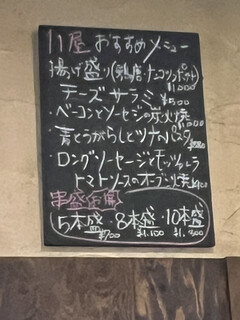 屋 おすすめメニュー
揚げ盛り(鶏唐・ナンコツ・ポテト)
¥1,000
・チーズサラミ ¥500
・ベーコンとソーセージの炭火焼
¥1,000
・青とうがらしとツナのパスタ
・ロングソーセージとモッツァレラ
トマトソースのオーブン焼
串盛
5本盛・8本盛・10本盛
¥700 ¥1,100 ¥1,300